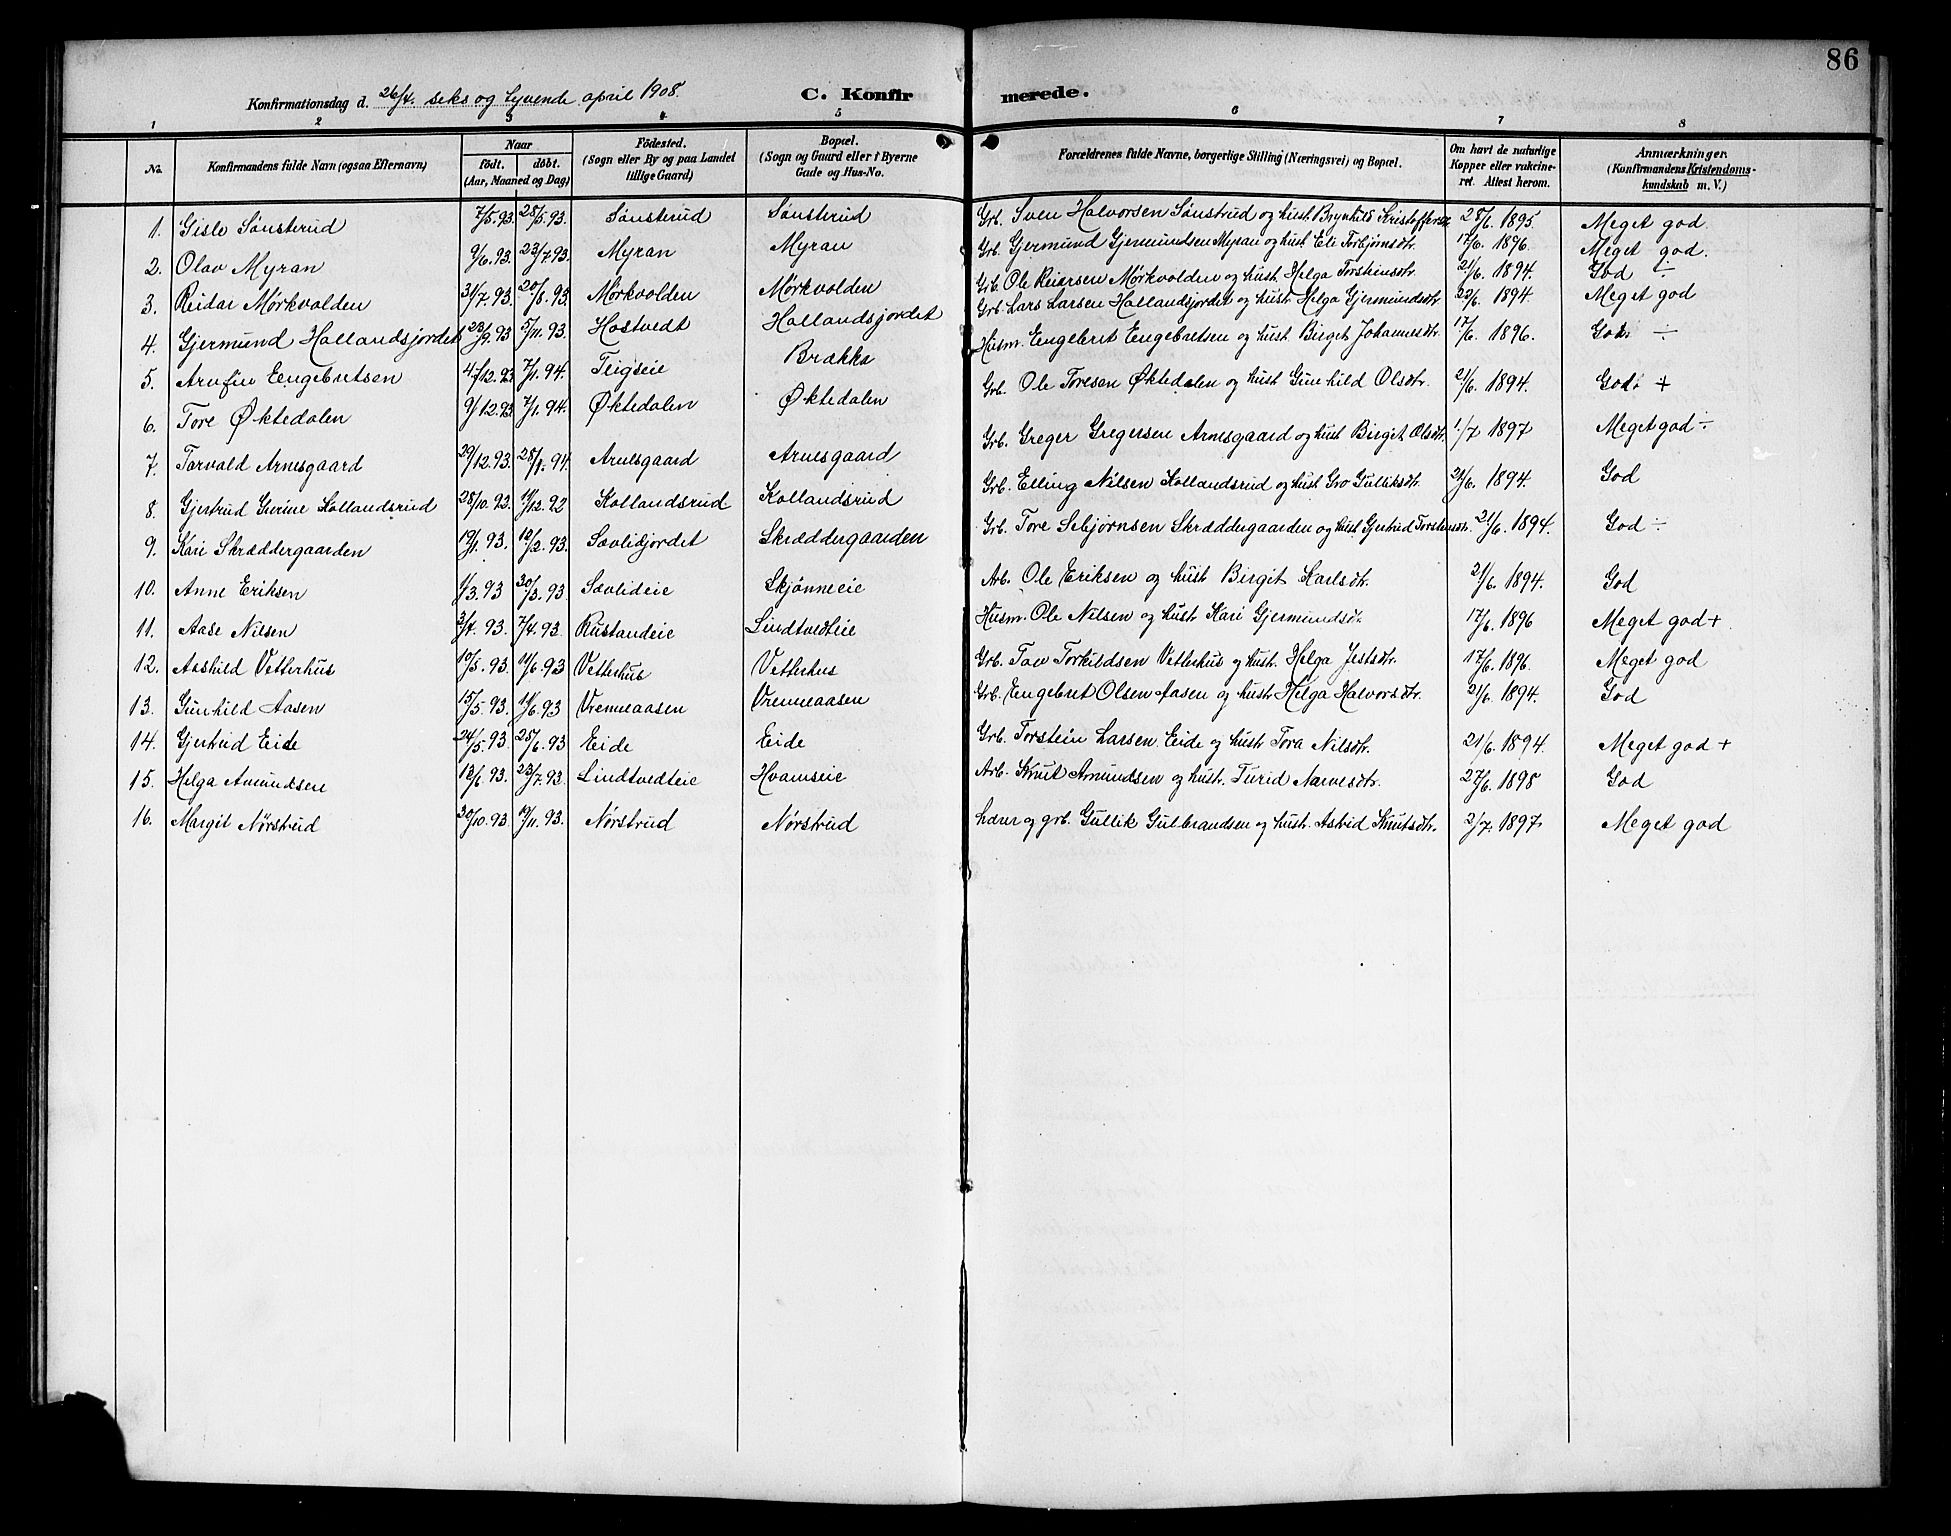 86
Konfirmationsdag d. 26/4. seks og tyvende april 1908. C. Konfirmerede.
1 2 3 4 5 6 7 8
No. Konfirmandens fulde Navn (ogsaa Efternavn) Naar født. døbt. (Aar, Maaned og Dag) Fødested. (Sogn eller By og paa Landet tillige Gaard) Bopæl. (Sogn og Gaard eller i Byerne Gade og Hus-No. Forældrenes fulde Navne, borgerlige Stilling (Næringsvei) og Bopæl. Om havt de naturlige Kopper eller vakcineret. Attest herom. Anmærkninger. (Konfirmandens Kristendomskundskab m. V.)
1. Gisle Sønsterud 7/5. 93. 28/5. 93. Sønsterud Sønsterud Grb. Sven Halvorsen Sønstrud og hust. Brynhild Kristoffersdtr. 28/6. 1895. Meget god.
2. Olav Myran 9/6. 93. 23/7 93. Myran Myran Grb. Gjermund Gjermundsen Myran og hust. Eli Torbjørnsdtr. 17/6. 1896. Meget god.
3. Reidar Mørkvolden 31/7. 93. 20/8. 93. Mørkvolden Mørkvolden Grb. Ole Reiersen Mørkvolden og hust. Helga Torsteinsdtr. 21/6. 1894. God ÷
4. Gjermund Hollandsjordet 23/9. 93 5/11. 93. Hostvedt Hollandsjordet Grb. Lars Larsen Hollandsjordet og hust. Helga Gjermundsdtr. 22/6. 1894. Meget god
5. Arnfin Engebretsen 4/12. 93 7/1. 94. Teigseie Brække Husm. Engebret Engebretsen og hust. Birgit Johannesdtr. 17/6. 1896. God ÷
6. Tore Øktedalen 9/12. 93 7/1. 94. Øktedalen Øktedalen Grb. Ole Toresen Øktedalen og hust. Gunhild Olsdtr. 21/6. 1894. God +
7. Torvald Arnesgaard 29/12. 93. 28/1. 94. Arnesgaard Arnesgaard Grb. Greger Gregersen Arnesgaard og hust. Birgit Olsdtr. 1/7 1897 Meget god ÷
8. Gjertrud Gurine Kollandsrud 28/10. 92. 11/12. 92 Kollandsrud Kollandsrud Grb. Elling Nilsen Kollandsrud og hust. Gro Gulliksdtr. 21/6. 1894. God
9. Kari Skræddergaarden 19/1. 93. 12/2. 93. Sævlidjordet Skræddergaarden Grb. Tore Sebjørnsen Skræddergaarden og hust. Gjertrud Torsteinsdtr. 21/6. 1894. God ÷
10. Anne Eriksen 1/3. 93 30/3. 93. Sævlideie Skjønneeie Arb. Ole Eriksen og hust. Birgit Karlsdtr. 21/6. 1894. God
11. Aase Nilsen 3/4. 93. 7/4. 93. Rustandeie Lindtvedteie Husm. Ole Nilsen og hust. Kari Gjermundsdtr. 17/6. 1896 Meget god +
12. Aashild Vetterhus 10/5. 93. 11/6. 93 Vetterhus Vetterhus Grb. Tov Torkildsen Vetterhus og hust. Helga Jestsdtr. 17/6. 1896. Meget god
13. Gunhild Aasen 15/5. 93. 11/6. 93 Vrenneaasen Vrenneaasen Grb. Engebret Olsen Aasen og hust. Helga Halvorsdtr. 21/6. 1894. God
14. Gjertrud Eide 24/5. 93. 25/6. 93 Eide Eide Grb. Torstein Larsen Eide og hust. Tora Nilsdtr. 21/6. 1894. Meget god +
15. Helga Amundsen 12/6. 93. 23/7. 93. Lindtvedteie Hvamseie Arb. Knut Amundsen og hust. Turid Narvesdtr. 27/6. 1898 God
16. Margit Nørstrud 30/10. 93 19/11. 93. Nørstrud Nørstrud Lærer og grb. Gullik Gulbrandsen og hust. Astrid Knutsdtr. 2/7. 1897. Meget god